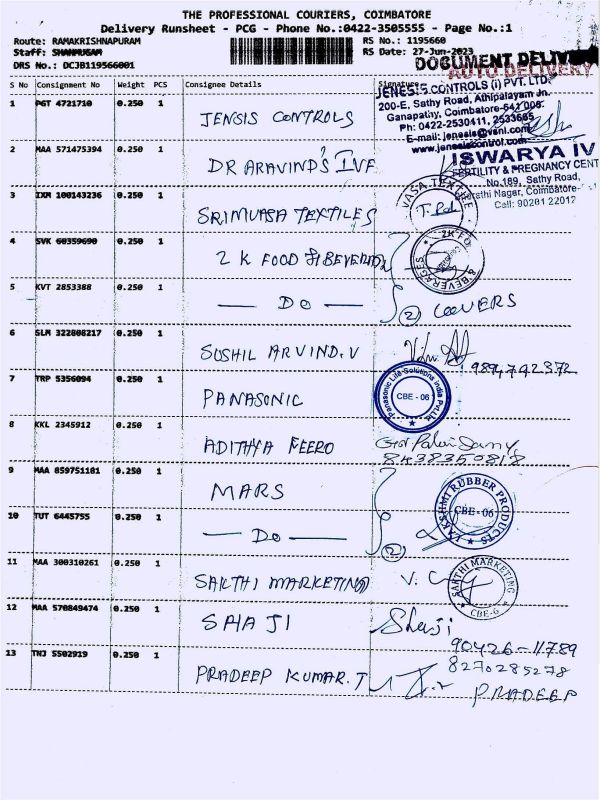 THE PROFESSIONAL COURIERS, COIMBATORE
Delivery Runsheet - PCG - Phone No.:0422-3505555 - Page No.:1
Route: RAMAKRISHNAPURAM RS No.: 1195660
Staff: SHANMUGAM RS Date: 27-Jun-2023
DRS No.: DCJB119566001
DOCUMENT DELIVERY
AUTO DELIVERY
S No Consignment No Weight PCS Consignee Details Signature
JENESIS CONTROLS (i) PVT. LTD.
200-E, Sathy Road, Athipalayam Jn.
Ganapathy, Coimbatore-641 006.
Ph: 0422-2530411, 2533685
E-mail: jenesis@vsnl.com
www.jenesiscontrol.com
1 PGT 4721710 0.250 1 JENSIS CONTROLS
2 MAA 571475394 0.250 1 DR ARAVIND'S IVF
ISWARYA IV
FERTILITY & PREGNANCY CENT
No.189, Sathy Road,
Nagar, Coimbatore-
Cell: 90201 22012
3 IXM 100143236 0.250 1 SRIMVASA TEXTILES
VASA TEXTILE
4 SVK 60359690 0.250 1 2 K FOOD & BEVERAGE
2K FO
& BEVERAGES
5 KVT 2853388 0.250 1 — DO — (2) COOVERS
6 SLM 322808217 0.250 1 SUSHIL ARVIND.V
7 TRP 5356094 0.250 1 PANASONIC
Panasonic Life Solutions India Pvt.Ltd
CBE - 06
8 KKL 2345912 0.250 1 ADITHYA FEERO
8438350818
9 MAA 859751181 0.250 1 MARS
LAKSHMI RUBBER PRODUCTS
CBE - 06
10 TUT 6445755 0.250 1 — DO — (2)
11 MAA 300310261 0.250 1 SAKTHI MARKETING
SAKTHI MARKETING
CBE-6
12 MAA 570849474 0.250 1 SHAJI Shaji
90426-11789
13 TNJ 5502919 0.250 1 PRADEEP KUMAR.T
8270285278
PRADEEP